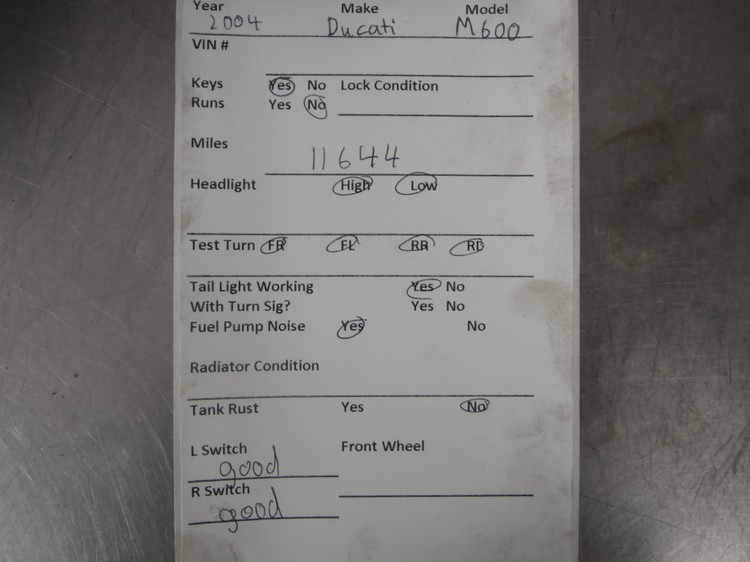 Year Make Model
2004 Ducati M600
VIN #
Keys Yes No Lock Condition
Runs Yes No
Miles
11644
Headlight High Low
Test Turn FR FL RR RL
Tail Light Working Yes No
With Turn Sig? Yes No
Fuel Pump Noise Yes No
Radiator Condition
Tank Rust Yes No
L Switch Front Wheel
good
R Switch
good